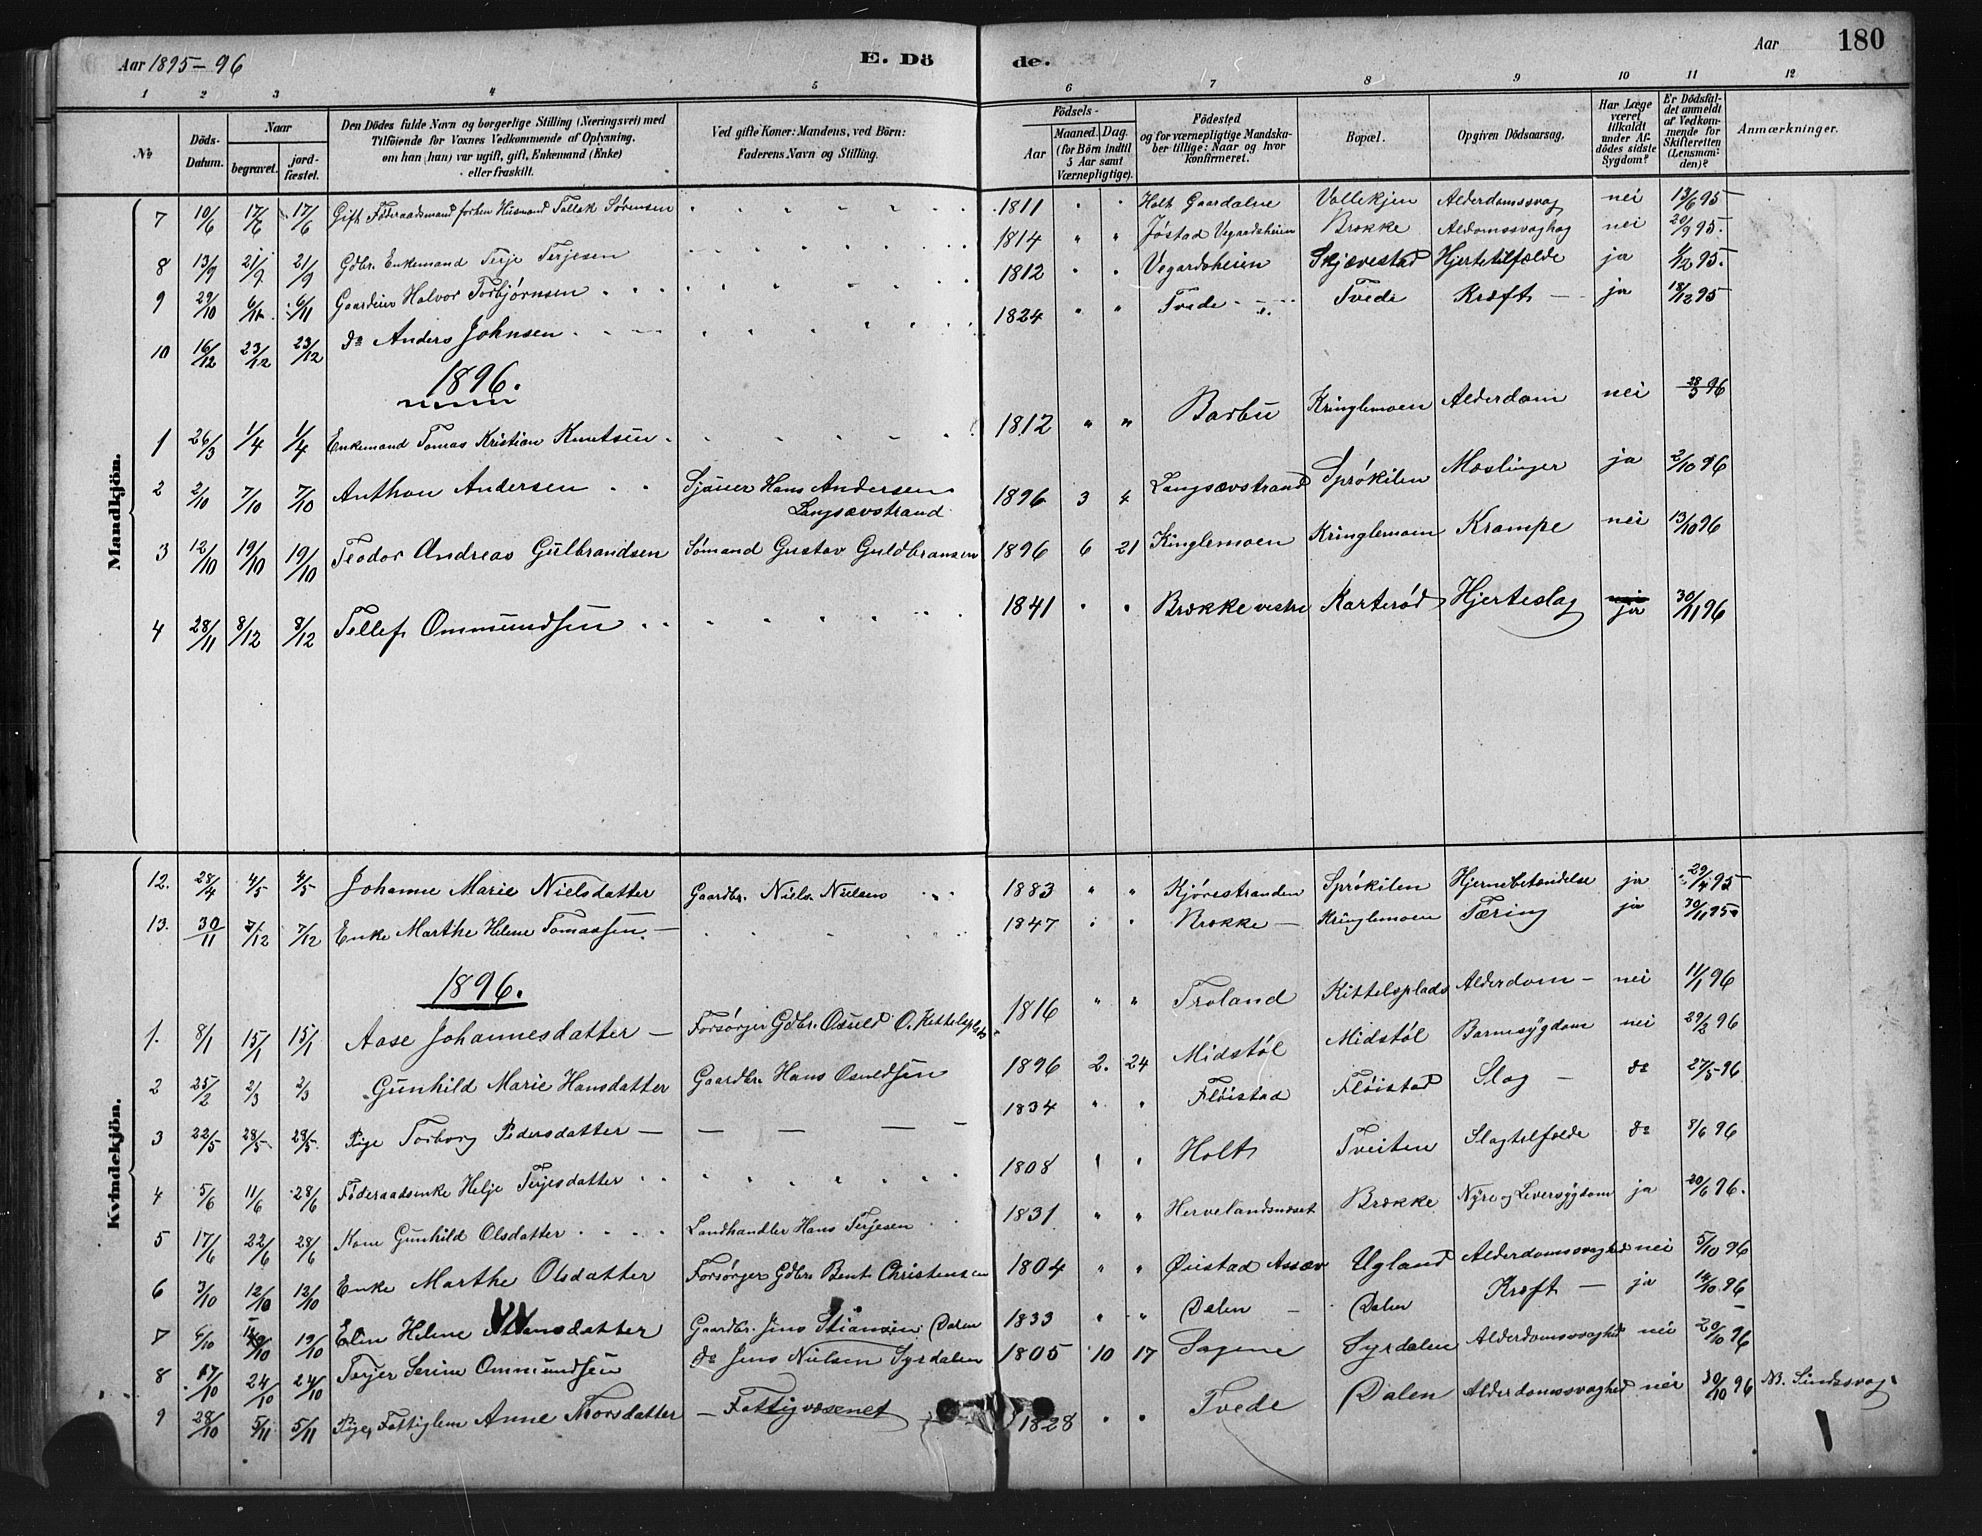 Aar 1895-96 E. Dö de. Aar 180
1 2 3 4 5 6 7 8 9 10 11 12
№ Döds-Datum. Naar begravet. jord-fæstet. Den Dödes fulde Navn og borgerlige Stilling (Næringsvei) med Tilföiende for Voxnes Vedkommende af Oplysning, om han (hun) var ugift, gift, Enkemand (Enke) eller fraskilt. Ved gifte Koner: Mandens, ved Börn: Faderens Navn og Stilling. Födsels- Aar Maaned. Dag. (for Börn indtil 5 Aar samt Værnepligtige). Födested og for værnepligtige Mandskaber tillige: Naar og hvor konfirmeret. Bopæl. Opgiven Dödsaarsag. Har Læge været tilkaldt under Afdödes sidste Sygdom? Er Dödsfaldet anmeldt af Vedkommende for Skifteretten (Lensmanden)? Anmærkninger.
Mandkjön.
7 10/6 17/6 17/6 Gift Föderaadsmand forhen Husmand Tallak Sørensen 1811 Holt Gaardalne Vollekjen Alderdomssvag nei 13/6 95
8 13/9 21/9 21/9 Gdbr. Enkemand Terje Terjesen 1814 Jøstad Vegaardsheien Brække nei 20/9 95.
9 29/10 6/11 6/11 Gaardeier Halvor Torbjørnsen 1812 Vegardsheien Skjævestad Hjertetilfælde ja
10 16/12 23/12 23/12 do Anders Johnsen 1824 Tvede Tvede Kræft ja 18/12 95
1896.
1 26/3 1/4 1/4 Enkemand Tomas Kristian Knutsen 1812 Barbu Kringlemoen Alderdom nei 28/3 96
2 2/10 7/10 7/10 Anthon Andersen Sjauer Hans Andersen Langsævstrand 1896 3 4 Langsævstrand Sprøkilen Mæslinger ja 2/10 96
3 12/10 19/10 19/10 Teodor Andreas Gulbrandsen Sømand Gustav Guldbransen 1896 6 21 Kinglemoen Kringlemoen Krampe nei 13/10 96
4 28/11 8/12 8/12 Tellef Ommundsen 1841 Brække vestre Karterød Hjerteslag ja 30/11 96
Kvindekjön.
12. 28/4 4/5 4/5 Johanne Marie Nielsdatter Gaardbr. Niels Nielsen 1883 Kjørestranden Sprøkilen Hjernebetændelse ja 29/4 95
13. 30/11 7/12 7/12 Enke Marthe Helene Tomassen 1847 Brække Kringlemoen Tæring ja 30/11 95
1896.
1. 8/1 15/1 15/1 Aase Johannesdatter Forsørger Gdbr. Osuld O. Kittelsplads 1816 Froland Kittelsplads Alderdom nei 11/1 96
2 25/2 2/3 2/3 Gunhild Marie Hansdatter Gaardbr. Hans Osuldsen 1896 2. 24 Midstøl Midstøl Barnesygdom nei 29/2 96
3 22/5 28/5 28/5 Pige Torborg Pedersdatter 1834 Fløistad Fløistad Slag do 27/5 96
4 5/6 11/6 28/6 Föderaadsenke Helje Terjesdatter 1808 Holt Tveiten Slagtilfælde do 8/6 96
5 17/6 22/6 28/6 Kone Gunhild Olsdatter Landhandler Hans Terjesen 1831 Hervelandsnæset Brække Nyre og Leversygdom ja 20/6 96.
6 3/10 12/10 12/10 Enke Marthe Olsdatter Forsørger Gdbr. Bent Christensen 1804 Øiestad Assæv Ugland Alderdomssvaghed nei 5/10 96
7 6/10 19/10 Elen Helene Gaardbr. Jens Stiansen Dalen 1833 Dalen Dalen Kræft ja 14/10 96
8 17/10 24/10 24/10 Terjer Serine Ommundsen do Jens Nielsen Syrdalen 1805 10 17 Sagene Syrdalen Alderdomssvaghed nei 20/10 96
9 28/10 5/11 5/11 Pige, Fattiglem Anne Thorsdatter Fattigvæsenet 1828 Tvede Dalen Alderdomssvaghed nei 30/10 96 NB. Sindssvag.